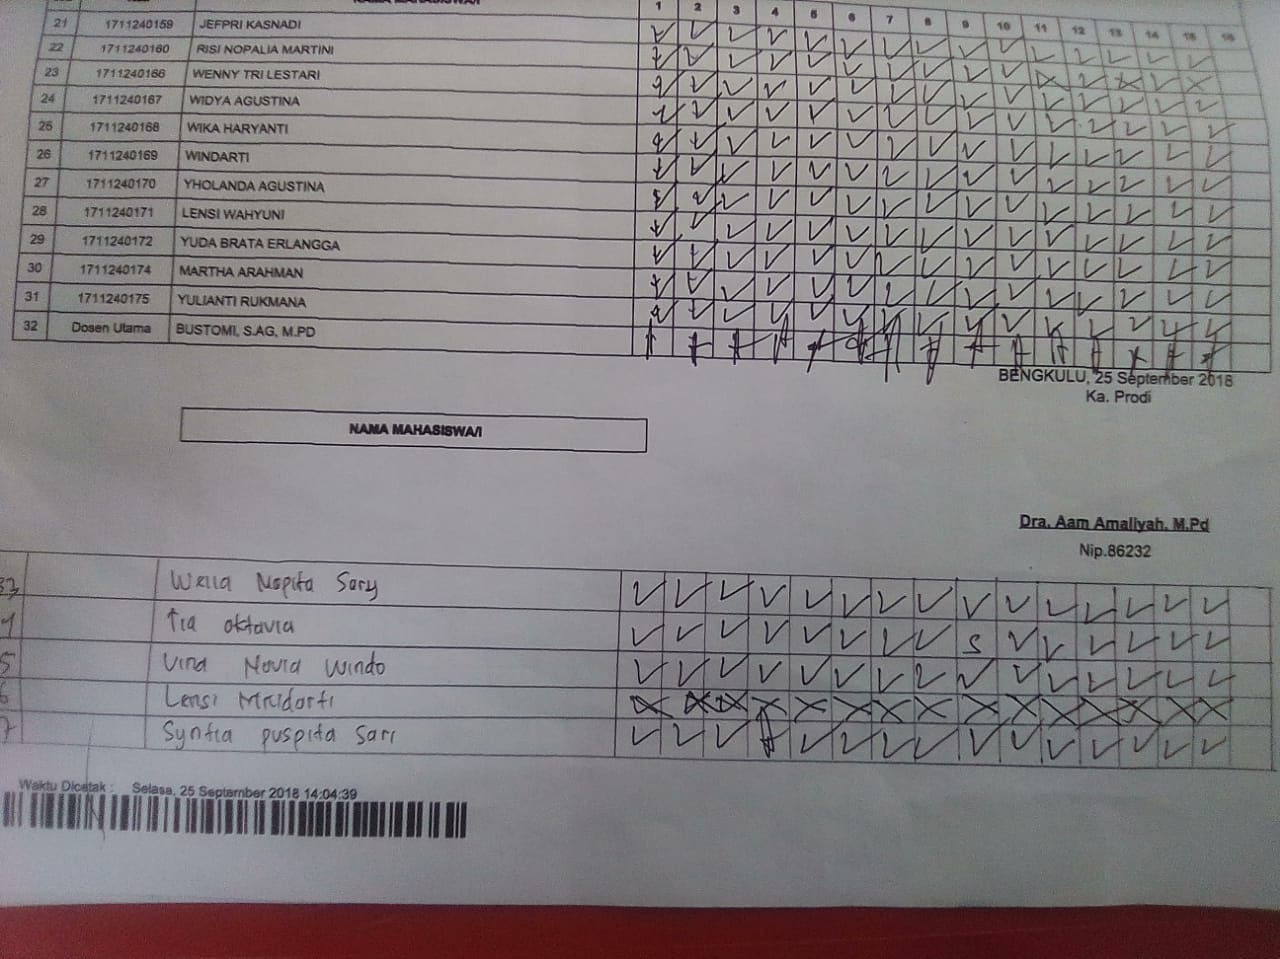 NAMA MAHASISWA/I 1 2 3 4 5 6 7 8 9 10 11 12 13 14 15 16
21 1711240159 JEFPRI KASNADI
22 1711240160 RISI NOPALIA MARTINI
23 1711240166 WENNY TRI LESTARI
24 1711240167 WIDYA AGUSTINA
25 1711240168 WIKA HARYANTI
26 1711240169 WINDARTI
27 1711240170 YHOLANDA AGUSTINA
28 1711240171 LENSI WAHYUNI
29 1711240172 YUDA BRATA ERLANGGA
30 1711240174 MARTHA ARAHMAN
31 1711240175 YULIANTI RUKMANA
32 Dosen Utama BUSTOMI, S.AG, M.PD
BENGKULU, 25 September 2018
Ka. Prodi
NAMA MAHASISWA/I
Dra. Aam Amaliyah, M.Pd
Nip.86232
33 Wella Nopita Sary
Tia oktavia S
5 Vina Novia Windo
6 Lensi
7 Syntia puspita Sari
Waktu Dicetak : Selasa, 25 September 2018 14:04:39